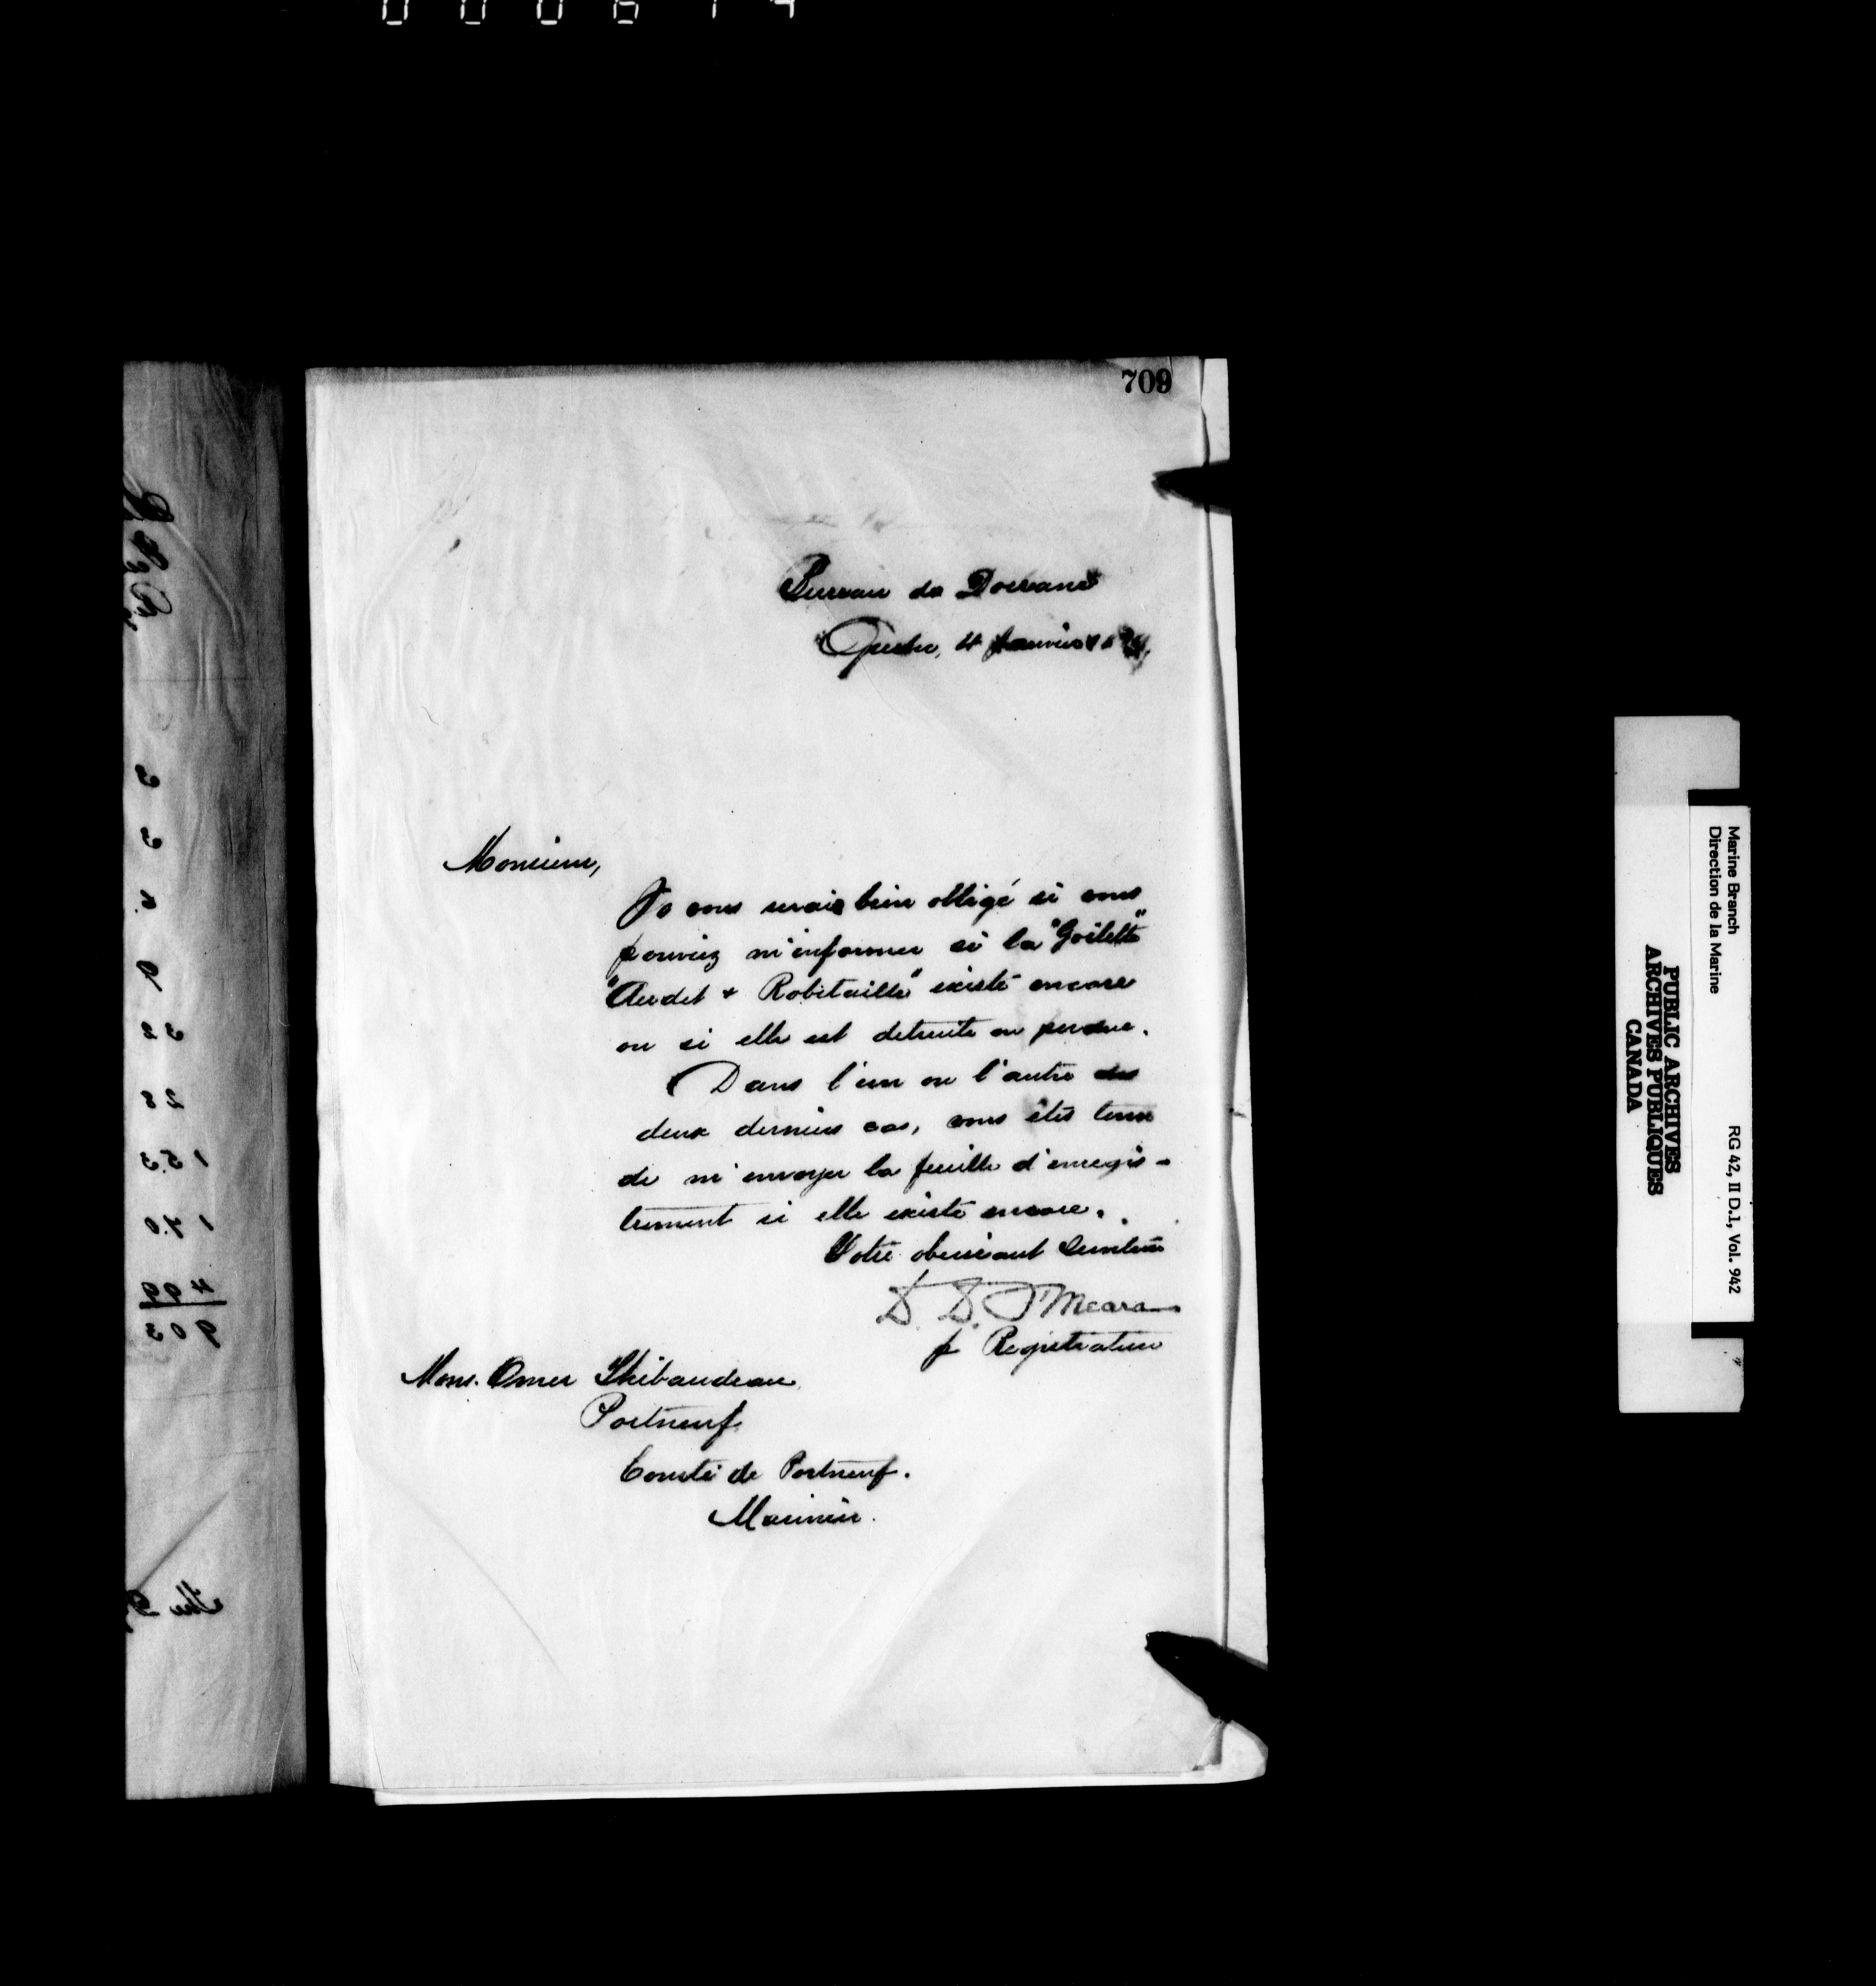 709
Bureau de Douane
Quebec, 4 Janvier
Monsieur,
Je vous serais bien obligé si vous
pouviez m'informer si la "Goilette"
"Audet & Robitaille" existe encore
ou si elle est detruite ou perdue.
Dans l'un ou l'autre des
deux derniers cas, vous êtes tenu
de m'envoyer la feuille d'enregis-
trement si elle existe encore.
Votre obeissant Serviteur
D. D. O'Meara
p Registrateur
Mons. Omer Thibaudeau
Portneuf
Comté de Portneuf.
Marinier.
Marine Branch
Direction de la Marine
RG 42, II D.1, Vol. 942
PUBLIC ARCHIVES
ARCHIVES PUBLIQUES
CANADA